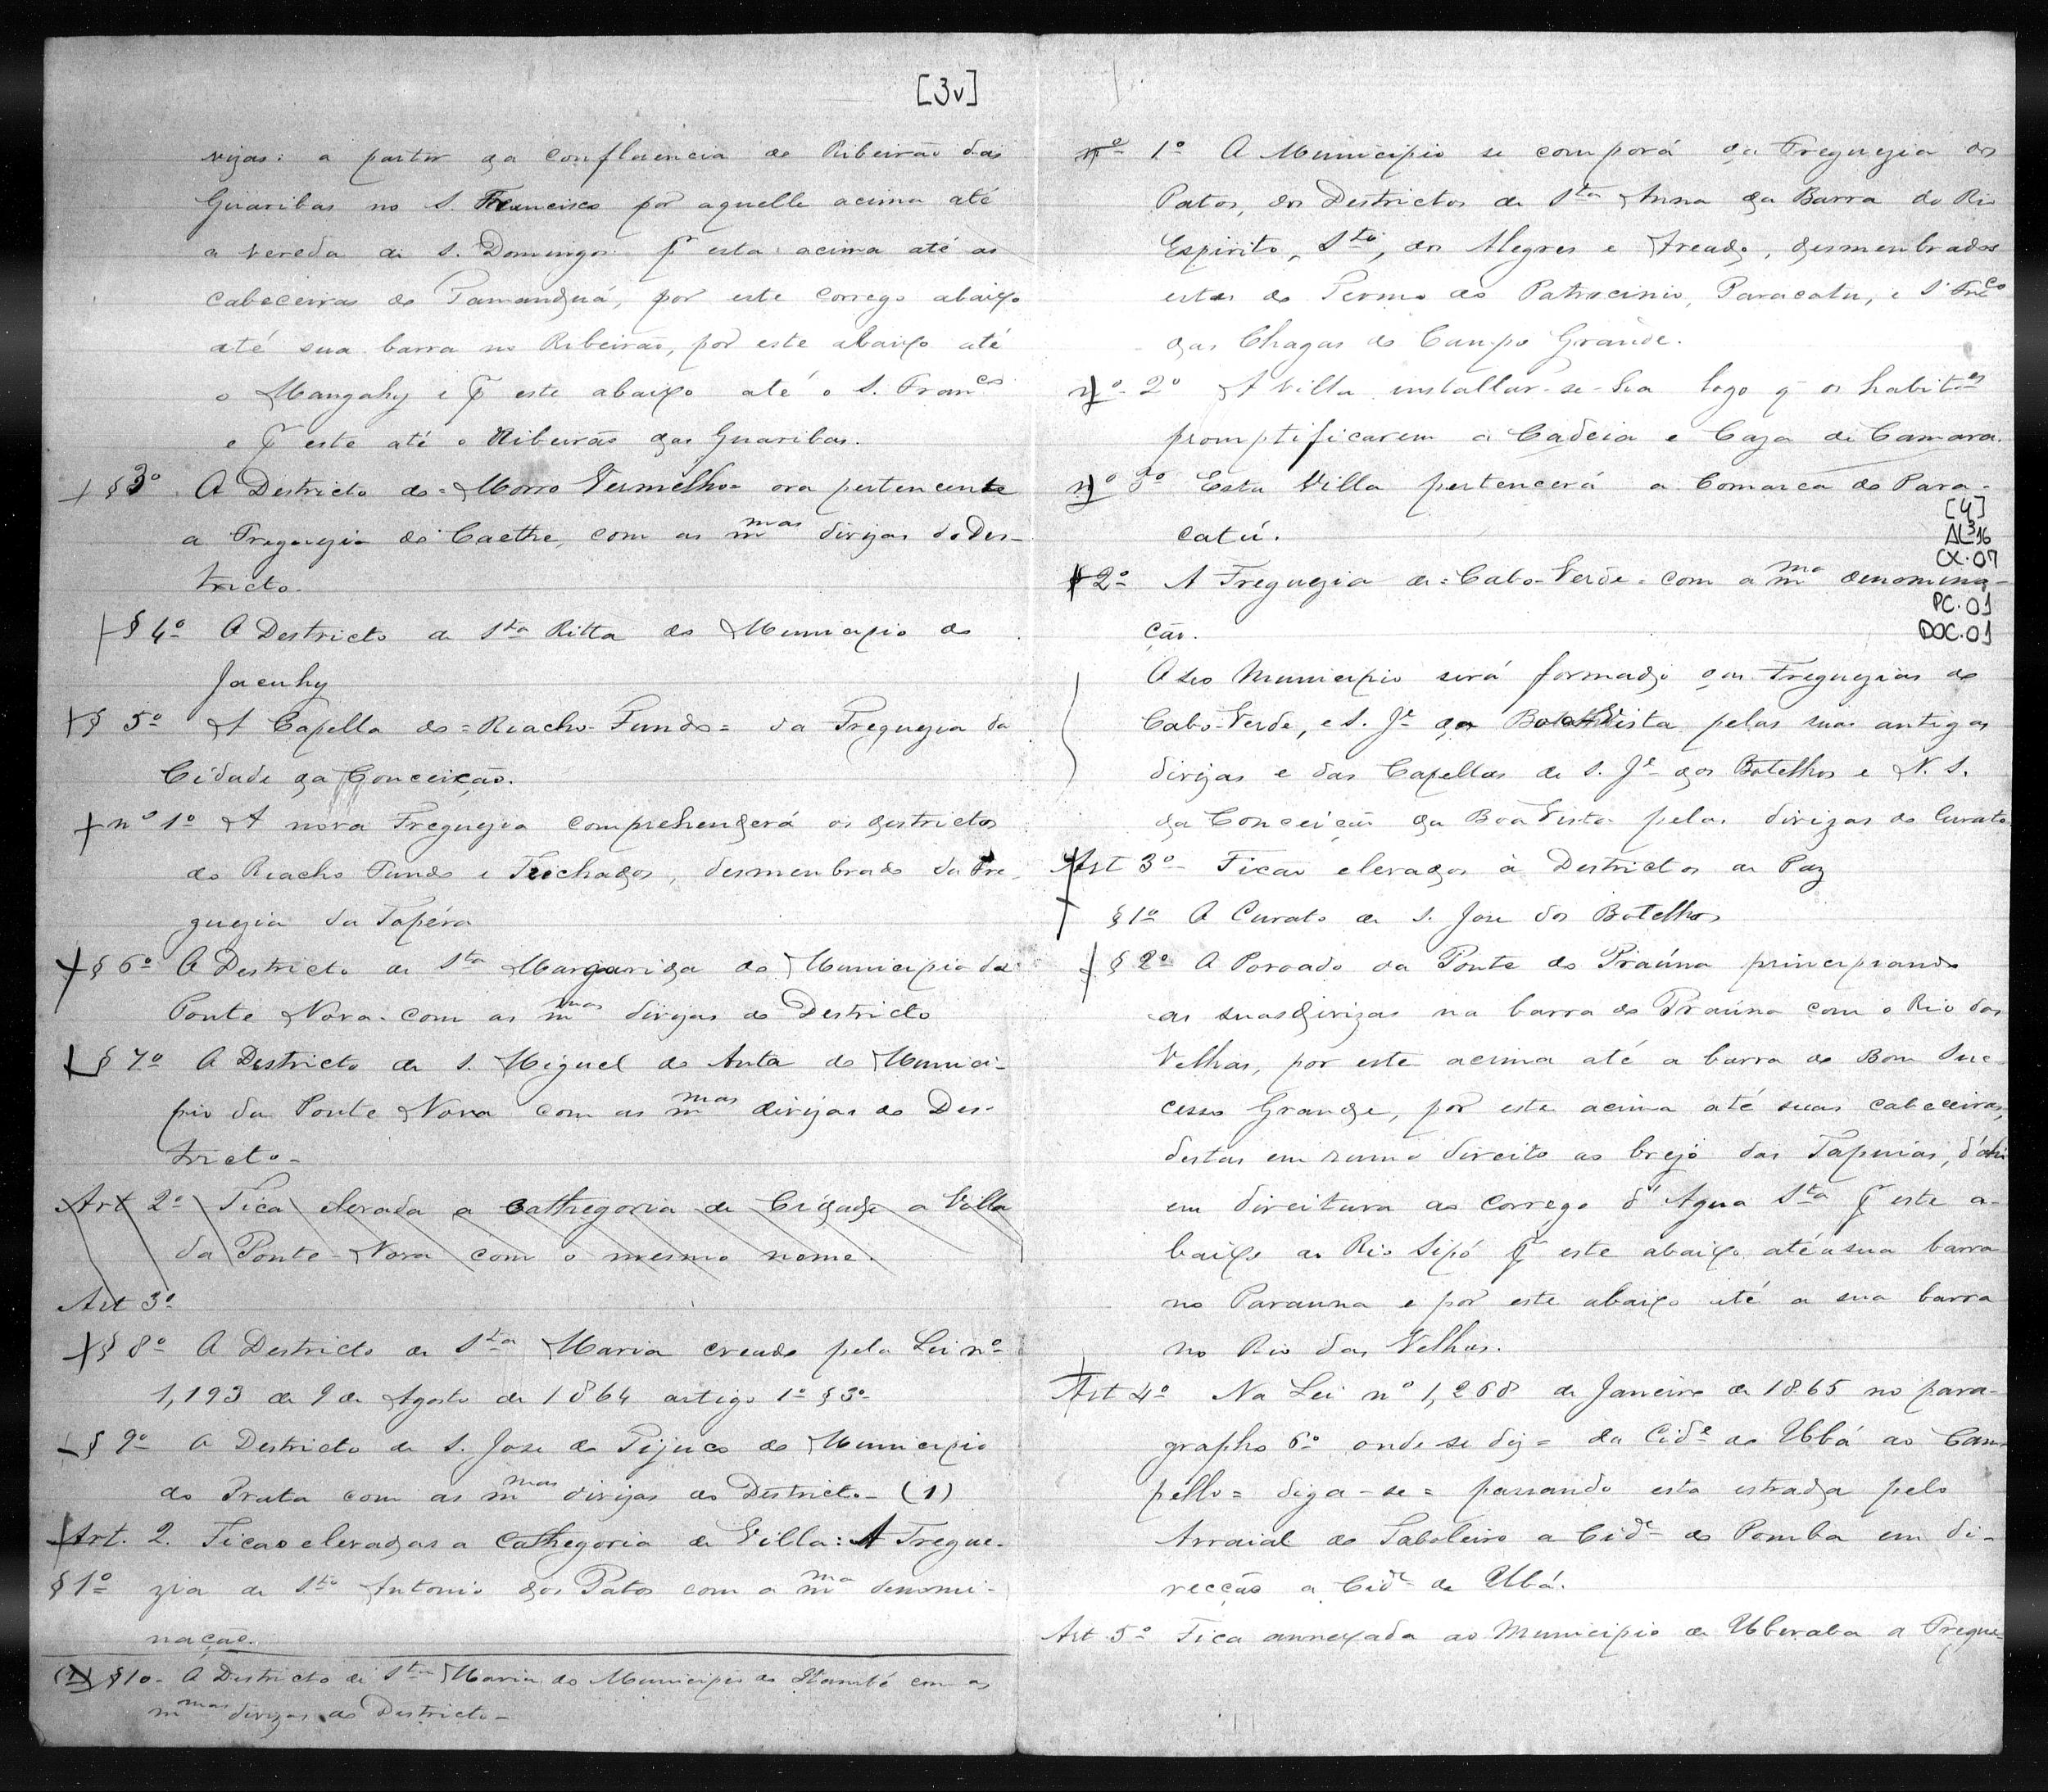 [3v]
vizas: a partir da confluencia do Ribeirão das
Guaribas no S. Francisco por aquelle acima até
a vereda de S. Domingos pr esta acima até as
cabeceiras do Tamanduá, por este corrego abaixo
até sua barra no Ribeirão, por este abaixo até
o Mangahy e pr este abaixo até o S. Franco
e pr este até o Ribeirão das Guaribas.
§ 3º O Districto do = Morro Vermelho = ora pertencente
a Freguezia do Caethe, com as mmas divizas do Des-
tricto.
§ 4º O Districto de Sta Ritta do Municipio de
Jacuhy
§ 5º A Capella do = Riacho-Fundo = da Freguezia da
Cidade da Conceição.
nº 1º A nova Freguezia comprehenderá os districtos
do Riacho Fundo e Fechados, desmembrado da Fre-
guezia da Tapéra
§ 6º O Districto de Sta Margarida do Municipio da
Ponte Nova com as mmas divizas do Districto
§ 7º O Districto de S. Miguel do Anta do Munici-
pio da Ponte Nova com as mmas divizas do Des-
tricto-
Art 2º Fica elevada a cathegoria de Cidade a Villa
da Ponte-Nova com o mesmo nome.
Art 3º
§ 8º O Districto de Sta Maria creado pela Lei nº
1,193 de 9 de Agosto de 1864 artigo 1º § 3º
§ 9º O Districto de S. Jose do Tijuco do Municipio
do Prata com as mmas divizas do Districto- (1)
Art. 2. Ficão elevadas a Cathegoria de Villa: A Fregue-
§ 1º zia de Sto Antonio dos Patos com a mma denomi-
nação.
(1) § 10- O Districto de Sta Maria do Municipio do Itambé com as
mmas divizas do Districto-
nº 1º O Municipio se comporá da Freguezia dos
Patos, dos Destrictos de Sta Anna da Barra do Rio
Espirito, Sto, dos Alegres e Areado, desmenbrados
estes do Termo do Patrocinio, Paracatu, e S. Franco
das Chagas do Campo Grande.
nº 2º A Villa installar-se-ha logo q os habites
promptificarem a Cadeia e Caza de Camara.
nº 3º Esta Villa pertencerá a Comarca do Para-
catú.
[4]
AL³16
CX.07
PC.01
DOC.01
§ 2º A Freguezia de = Cabo-Verde = com a mma denomina-
ção.
O seo Municipio será formado das Freguezias de
Cabo-Verde, e S. Je da Boa Vista pelas suas antigas
divizas e das Capellas de S. Je dos Botelhos e N. S.
da Conceição da Boa Vista pelas divizas do Curato.
Art 3º Ficão elevados à Districtos de Paz
§ 1º O Curato de S. Jose dos Botelhos
§ 2º O Povoado da Ponte do Praúna principiando
as suas divizas na barra do Praúna com o Rio das
Velhas, por este acima até a barra do Bom Suc-
cesso Grande, por este acima até suas cabeceiras,
destas em rumo direito ao brejo das Tapuias, d'ahi
em direitura ao corrego d'Agua Sta pr este a-
baixo ao Rio Sipó pr este abaixo até a sua barra
no Parauna e por este abaixo até a sua barra
no Rio das Velhas.
Art 4º Na Lei nº 1,268 de Janeiro de 1865 no para-
grapho 6º onde se diz = da Cide do Ubbá ao Cam-
pello = diga-se = passando esta estrada pelo
Arraial do Taboleiro a Cide do Pomba em di-
recção a Cide de Ubá.
Art 5º Fica annexada ao Municipio de Uberaba a Fregue-